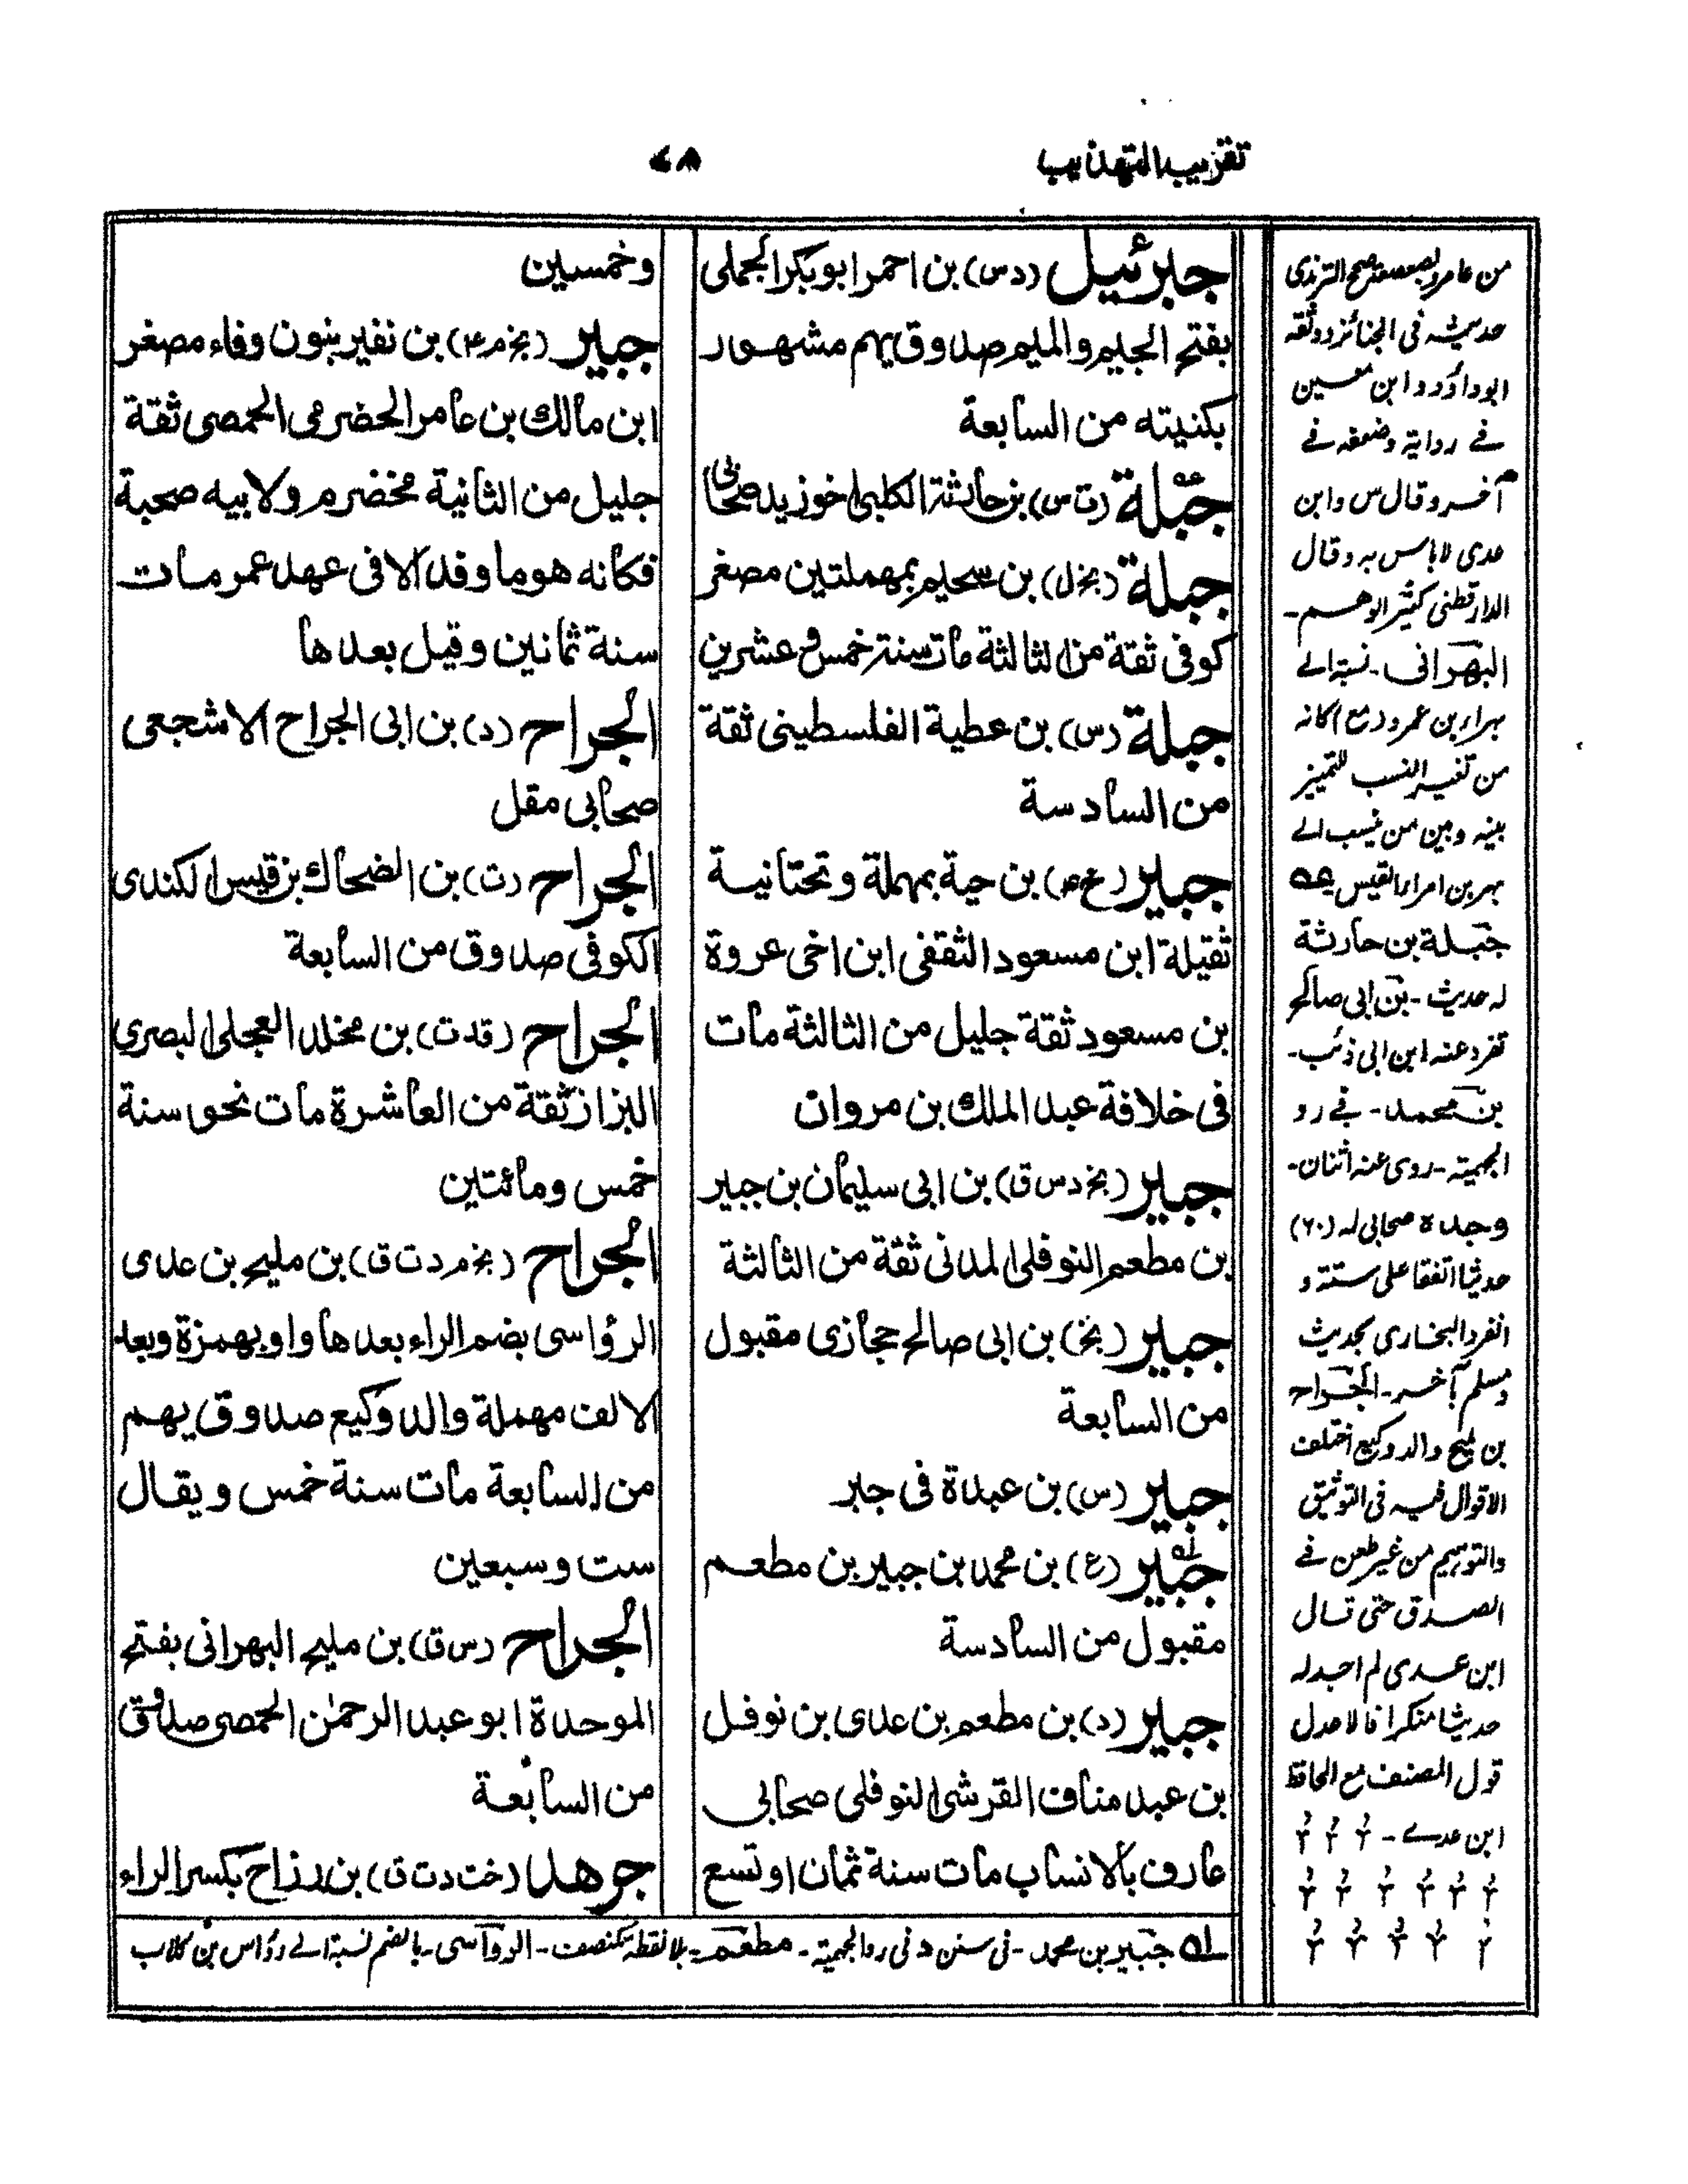 تقريب التهذيب
٧٨
جبرئيل (د س) بن احمر ابو بكر الجملى
بفتح الجيم والميم صدوق يهم مشهور
بكنيته من السابعة
جبلة (ت س) بن حارثة الكلبى اخو زيد صحابى
جبلة (بخ ل) بن سحيم بمهملتين مصغر
كوفى ثقة من الثالثة مات سنة خمس وعشرين
جبلة (س) بن عطية الفلسطينى ثقة
من السادسة
جبير (خ ص) بن حية بمهملة وتحتانية
ثقيلة ابن مسعود الثقفى ابن اخى عروة
بن مسعود ثقة جليل من الثالثة مات
فى خلافة عبد الملك بن مروان
جبير (بخ د س ق) بن ابى سليمان بن جبير
بن مطعم النوفلى المدنى ثقة من الثالثة
جبير (بخ) بن ابى صالح حجازى مقبول
من السابعة
جبير (س) بن عبدة فى جبر
جبير (ع) بن محمد بن جبير بن مطعم
مقبول من السادسة
جبير (د) بن مطعم بن عدى بن نوفل
بن عبد مناف القرشى النوفلى صحابى
عارف بالانساب مات سنة ثمان او تسع
وخمسين
جبير (بخ م ۴) بن نفير بنون وفاء مصغر
ابن مالك بن عامر الحضرمى الحمصى ثقة
جليل من الثانية مخضرم ولابيه صحبة
فكانه هو ما وفد الا فى عهد عمر مات
سنة ثمانين وقيل بعدها
الجراح (د) بن ابى الجراح الاشجعى
صحابى مقل
الجراح (ت) بن الضحاك بن قيس الكندى
الكوفى صدوق من السابعة
الجراح (قد ت) بن مخلد العجلى البصرى
البزاز ثقة من العاشرة مات نحو سنة
خمس ومائتين
الجراح (بخ م د ت ق) بن مليح بن عدى
الرؤاسى بضم الراء بعدها واو بهمزة وبعد
الالف مهملة والد وكيع صدوق يهم
من السابعة مات سنة خمس ويقال
ست وسبعين
الجراح (س ق) بن مليح البهرانى بفتح
الموحدة ابو عبد الرحمٰن الحمصى صدوق
من السابعة
جرهد (خت د ت ق) بن رزاح بكسر الراء
من عامر صعصعة صحح الترمذى
حديثه فى الجنائز ووثقه
ابو داؤد و ابن معين
فے رواية وضعفه فے
آخر وقال س وابن
عدى لا باس به وقال
الدارقطنى كثير الوهم ـ
البهرانى ـ نسبة الے
بهراء بن عمرو
من تغيير النسب للتمييز
بينه وبين من ينسب الے
بهر بن امرء القيس
جبلة بن حارثة
له حديث ـ بن ابى صالح
تفرد عنه ابن ابى ذئب ـ
بن محمد ـ فے رد
الجهمية ـ روى عنه اثنان ـ
وجده صحابى له (٦٠)
حديثا اتفقا على ستة و
انفرد البخارى بحديث
ومسلم بآخر ـ الجراح
بن مليح والد وكيع اختلفت
الاقوال فيه فى التوثيق
والتوهيم من غير طعن فے
الصدق حتى قال
ابن عدى لم اجد له
حديثا منكرا فالاعدل
قول المصنف مع الحافظ
ابن عدے ـ
لـه جبير بن محمد ـ فى سنن د فى رد الجهمية ـ مطعم ـ بلا نقطة كمنصف ـ الرواسى ـ بالضم نسبة الے رؤاس بن كلاب